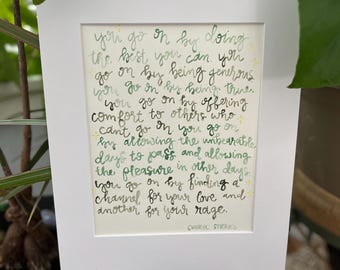 you go on by doing
the best you can you
go on by being generous
you go on by being true
you go on by offering
comfort to others who
can't go on you go on
by allowing the unbearable
days to pass and allowing
the pleasure in other days
you go on by finding a
channel for your love and
another for your rage.
CHERYL STRAYED